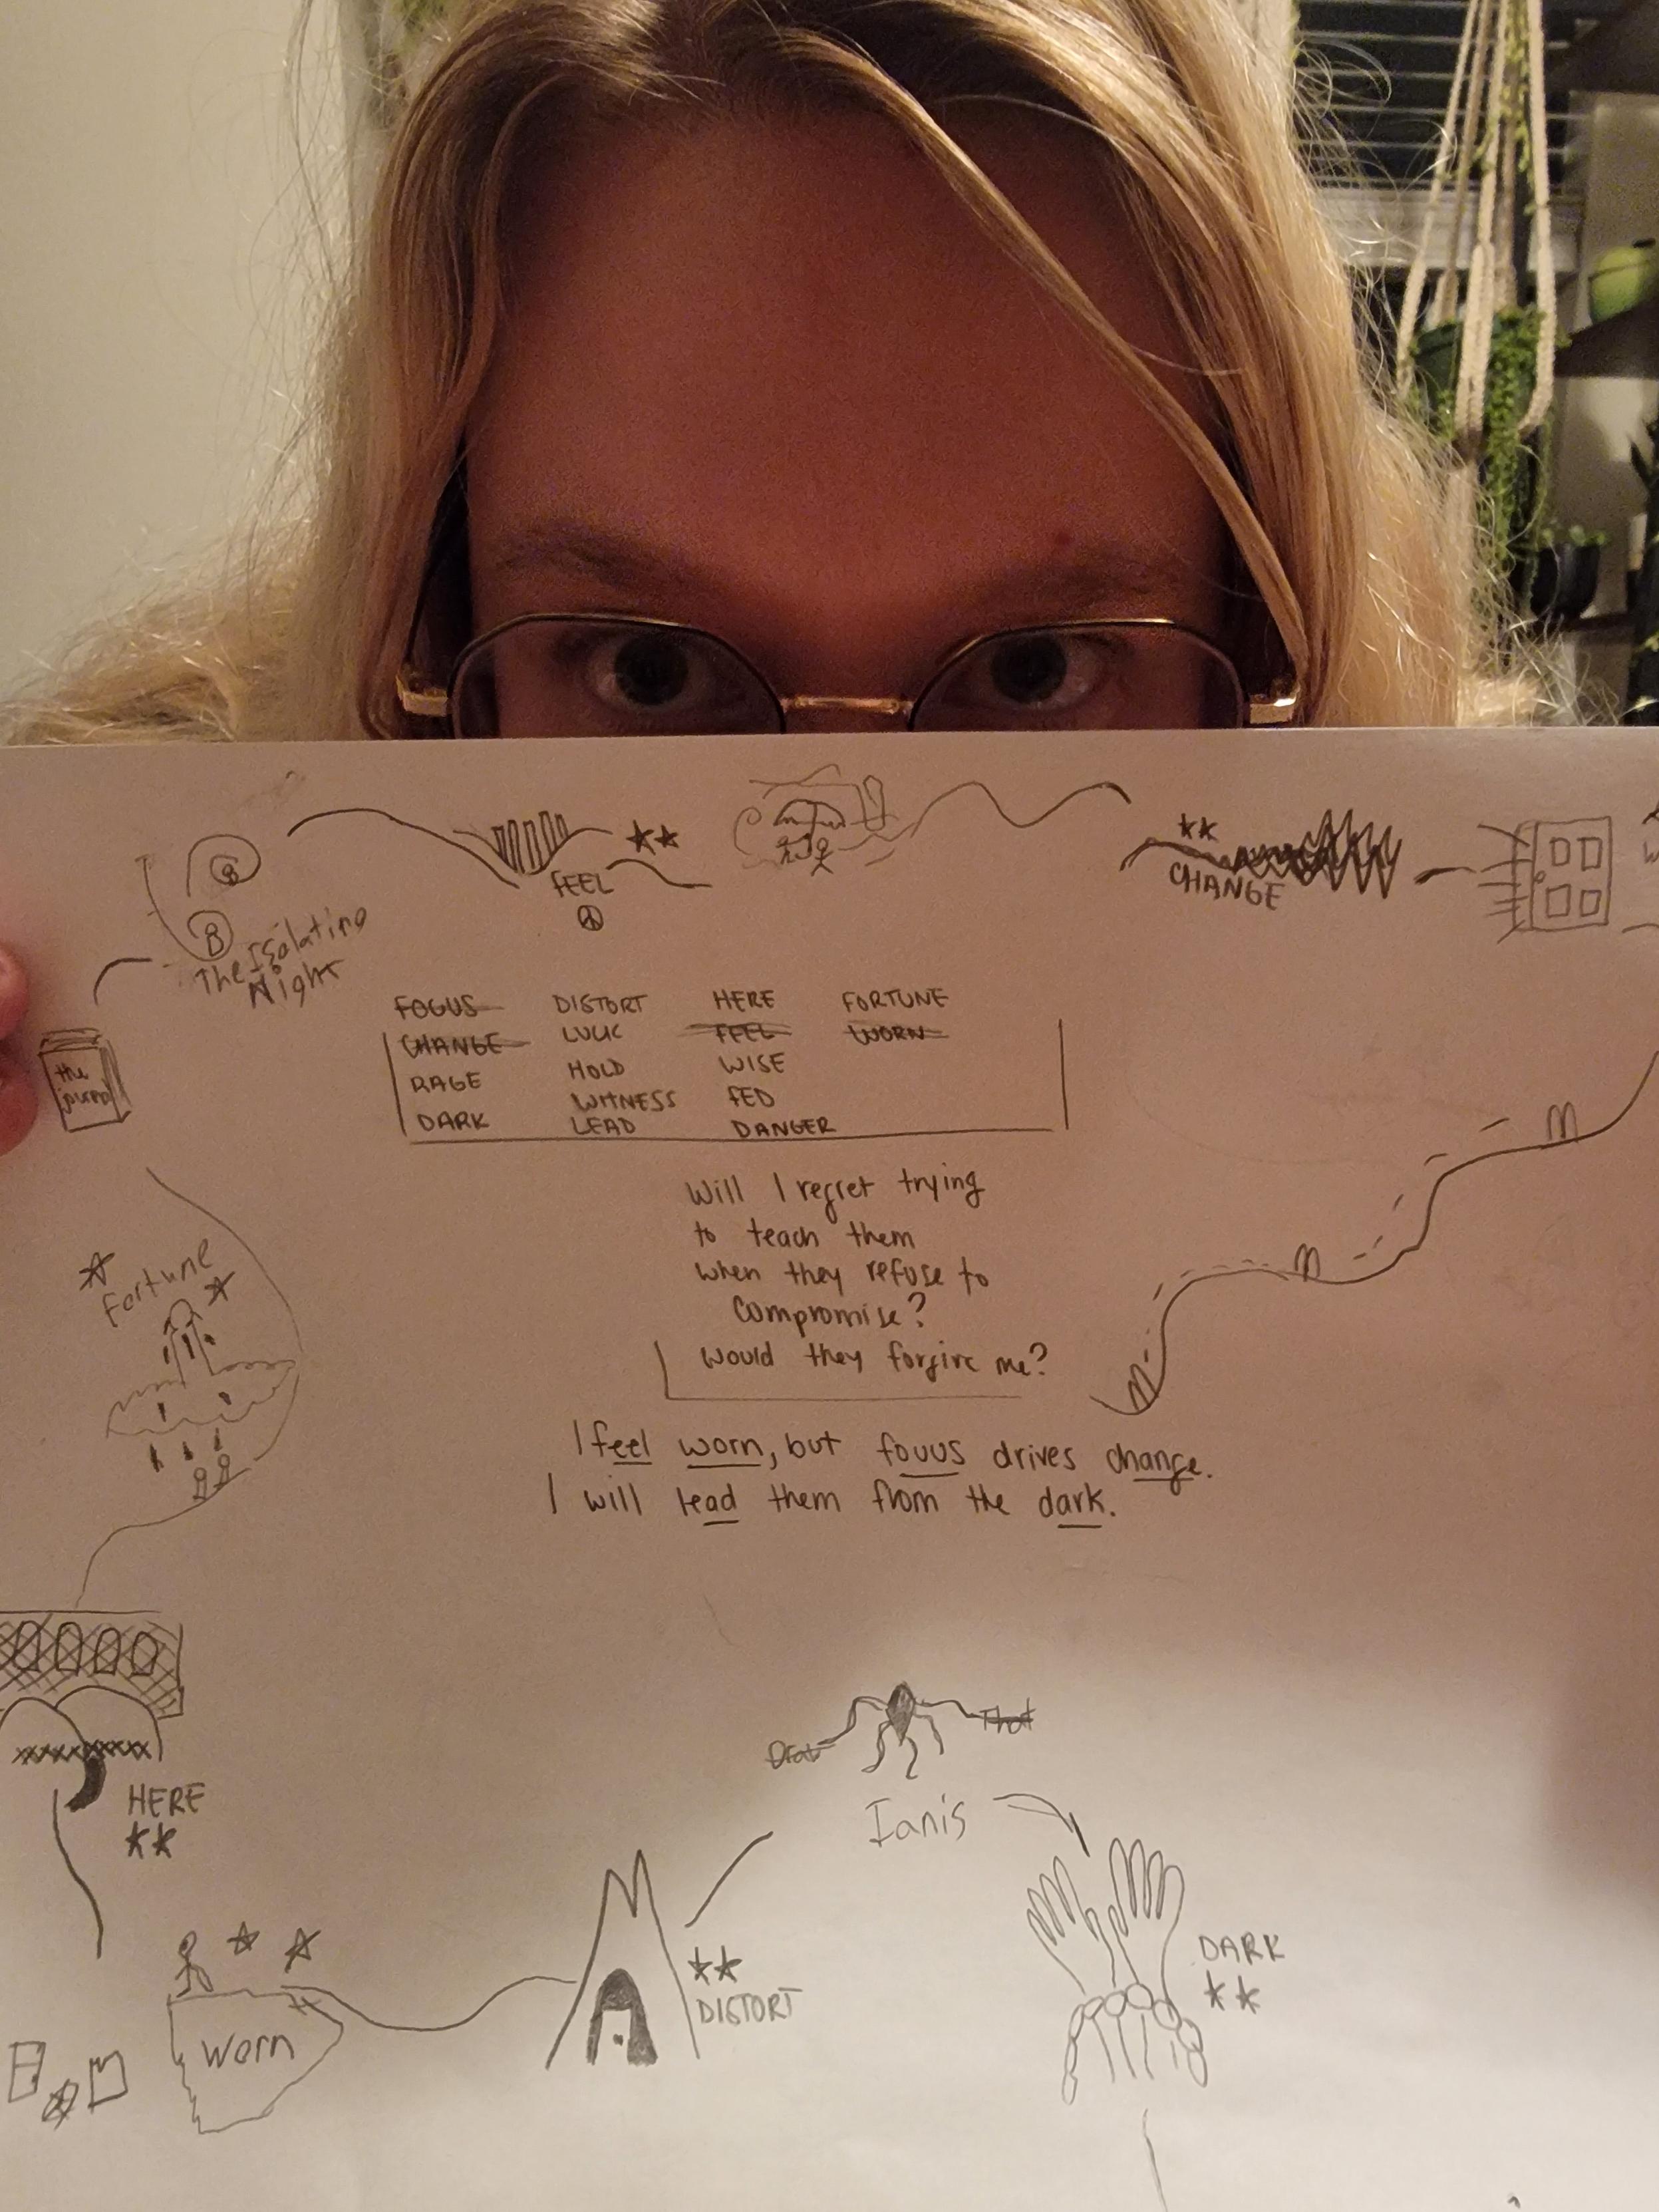 FEEL
CHANGE
The Isolating
Night
the
journal
FOCUS DISTORT HERE FORTUNE
CHANGE LUCK FEEL WORN
RAGE HOLD WISE
WITNESS FED
DARK LEAD DANGER
Will I regret trying
to teach them
when they refuse to
compromise?
would they forgive me?
fortune
I feel worn, but focus drives change.
I will lead them from the dark.
That
Ianis
HERE
DARK
DISTORT
Worn